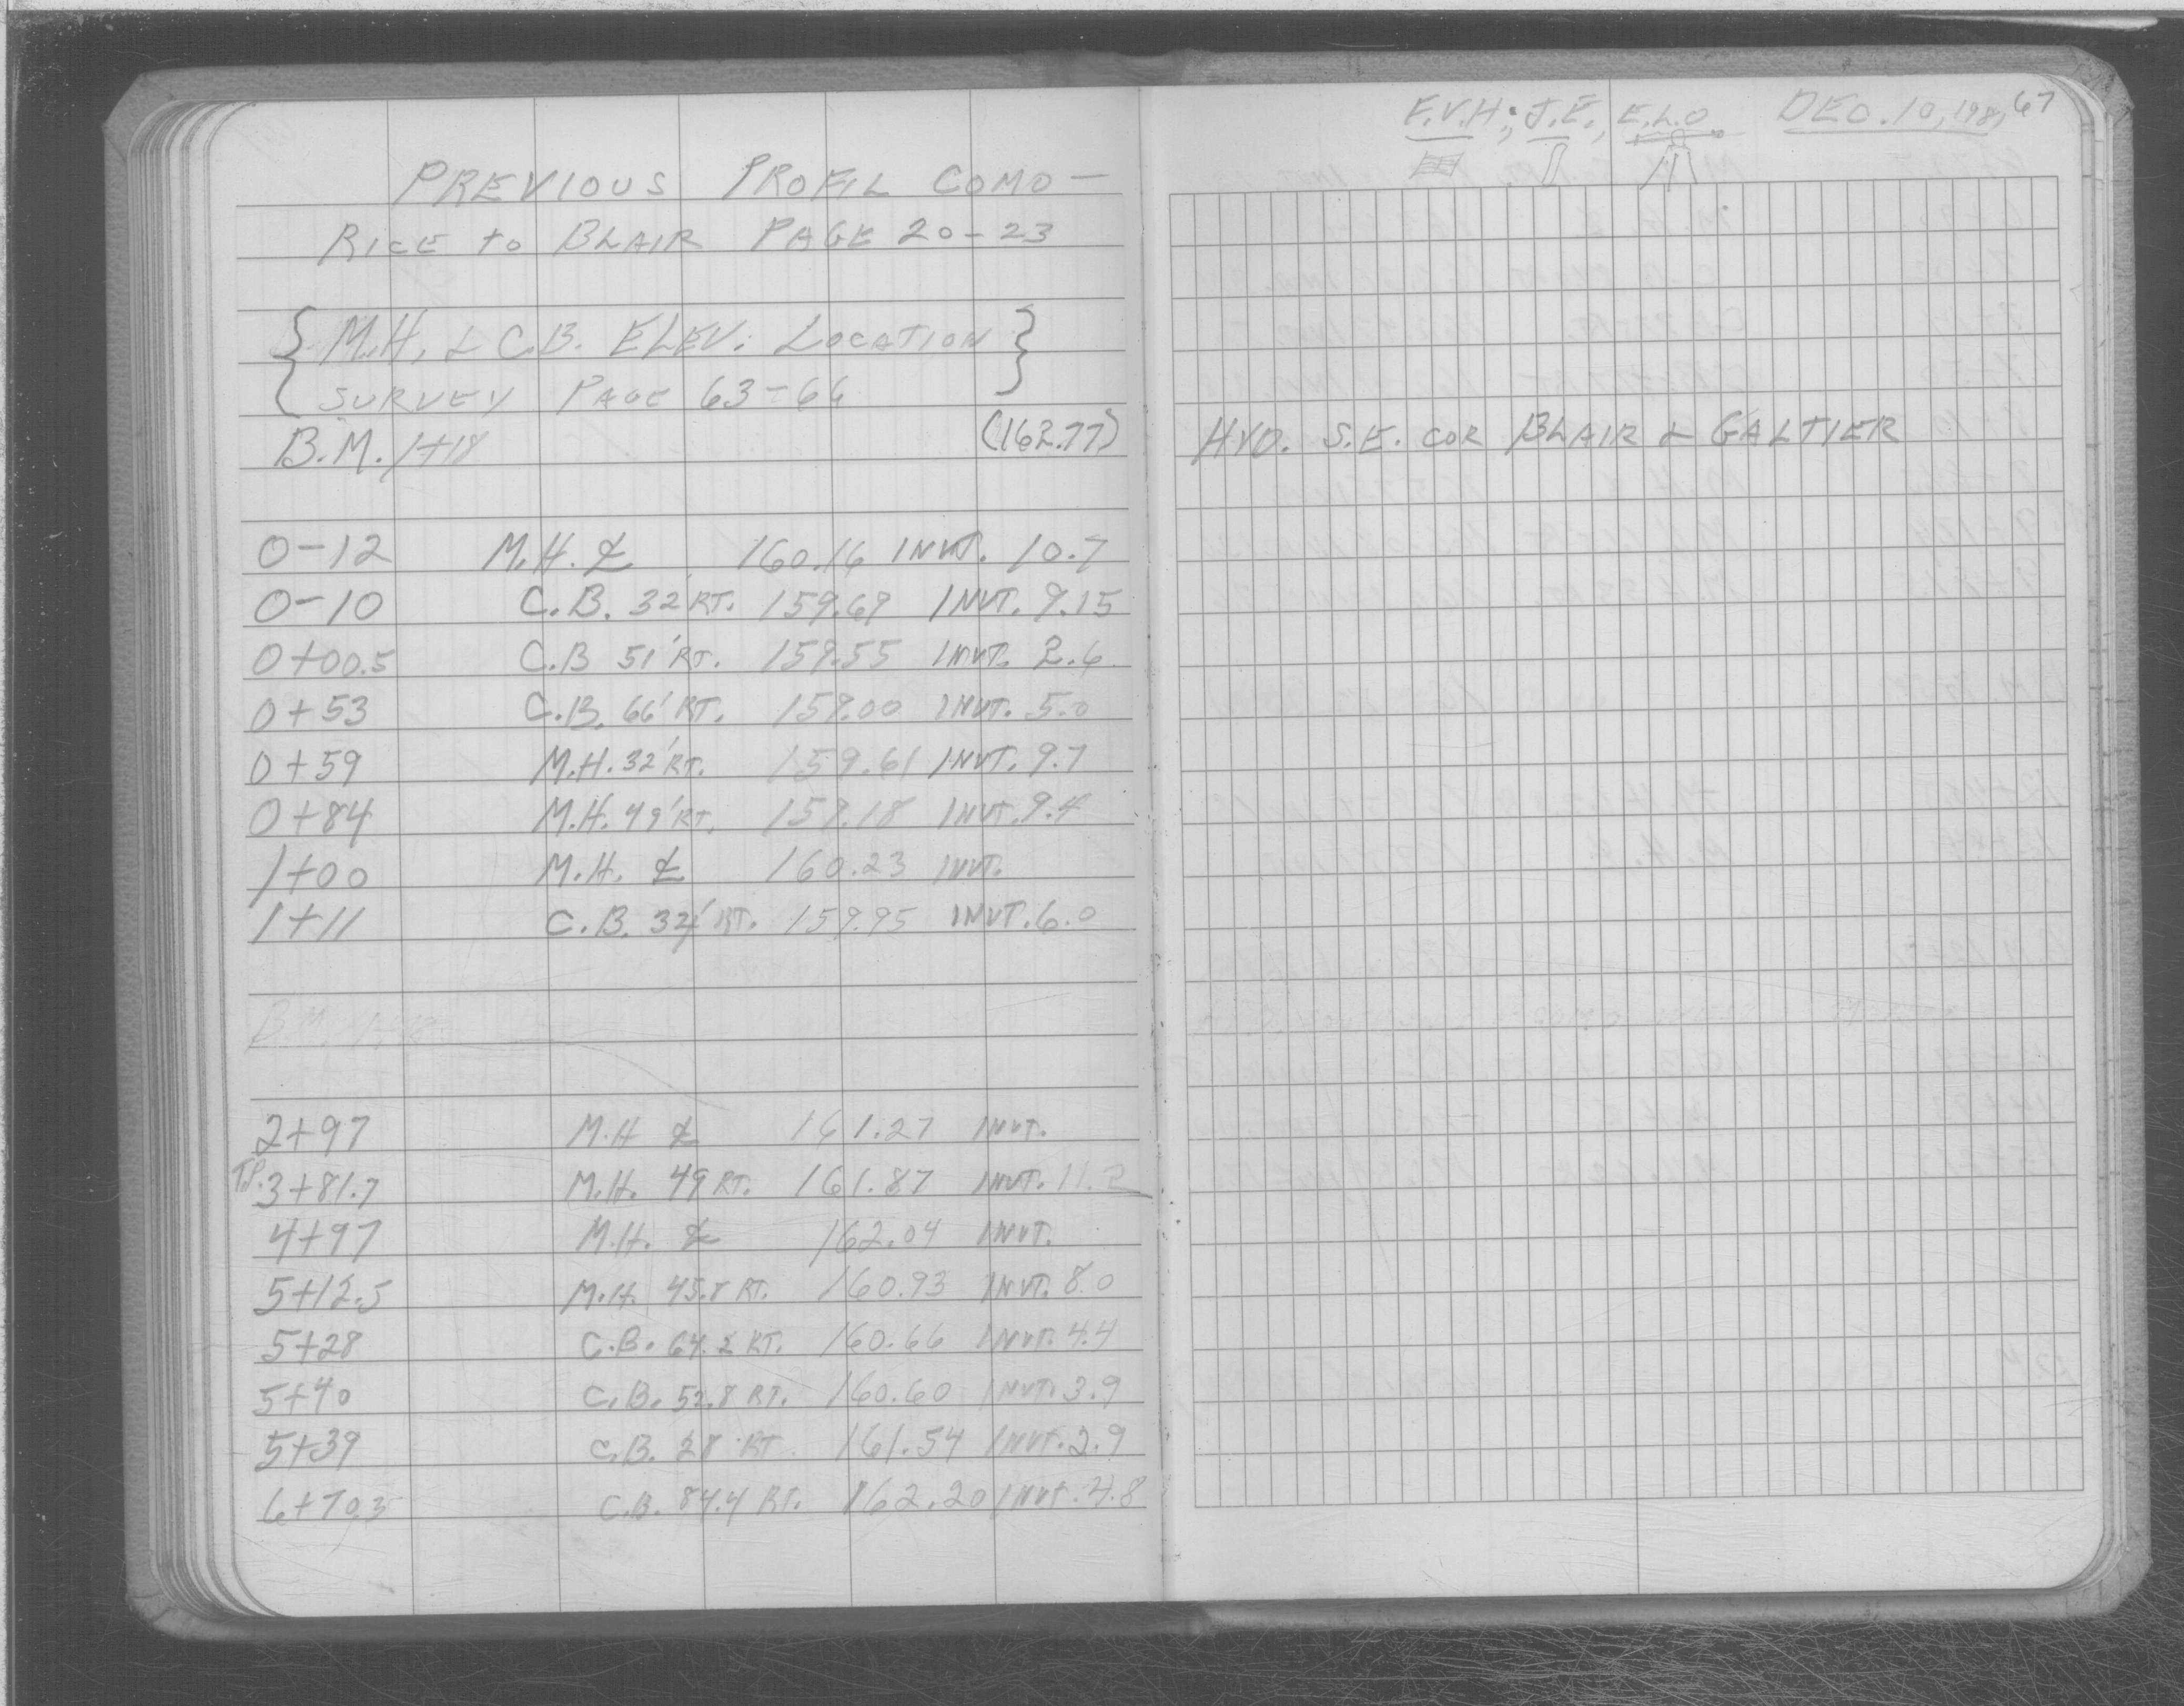 PREVIOUS PROFIL COMO —
RICE to BLAIR PAGE 20-23
{ M.H. & C.B. ELEV. LOCATION }
SURVEY PAGE 63-66
B.M. 1+18 (162.77)
0-12 M.H. ℄ 160.16 INVT. 10.7
0-10 C.B. 32' RT. 159.69 INVT. 9.15
0+00.5 C.B 51' RT. 159.55 INVT. 2.6
0+53 C.B. 66' RT. 159.00 INVT. 5.0
0+59 M.H. 32' RT. 159.61 INVT. 9.7
0+84 M.H. 49' RT. 159.18 INVT. 9.4
1+00 M.H. ℄ 160.23 INVT.
1+11 C.B. 32' RT. 159.95 INVT. 6.0
2+97 M.H ℄ 161.27 INVT.
T.P. 3+81.7 M.H. 49 RT. 161.87 INVT. 11.2
4+97 M.H. ℄ 162.04 INVT.
5+12.5 M.H. 45.8 RT. 160.93 INVT. 8.0
5+28 C.B. 64.2 RT. 160.66 INVT. 4.4
5+40 C.B. 52.8 RT. 160.60 INVT. 3.9
5+39 C.B. 28 RT. 161.54 INVT. 2.9
6+70.5 C.B. 84.4 RT. 162.20 INVT. 4.8
F.V.H., J.E., E.L.O DEC. 10, 67
HYD. S.E. COR BLAIR & GALTIER